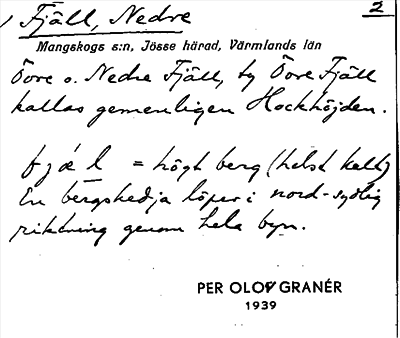 Fjäll, Nedre 2
Mangskogs s:n, Jösse härad, Värmlands län
Övre o. Nedre Fjäll, by Övre Fjäll
kallas gemenligen Hockhöjden.
fjæl = högt berg (helst kalt)
En bergskedja löper i nord-sydlig
riktning genom hela byn.
PER OLOV GRANÉR
1939